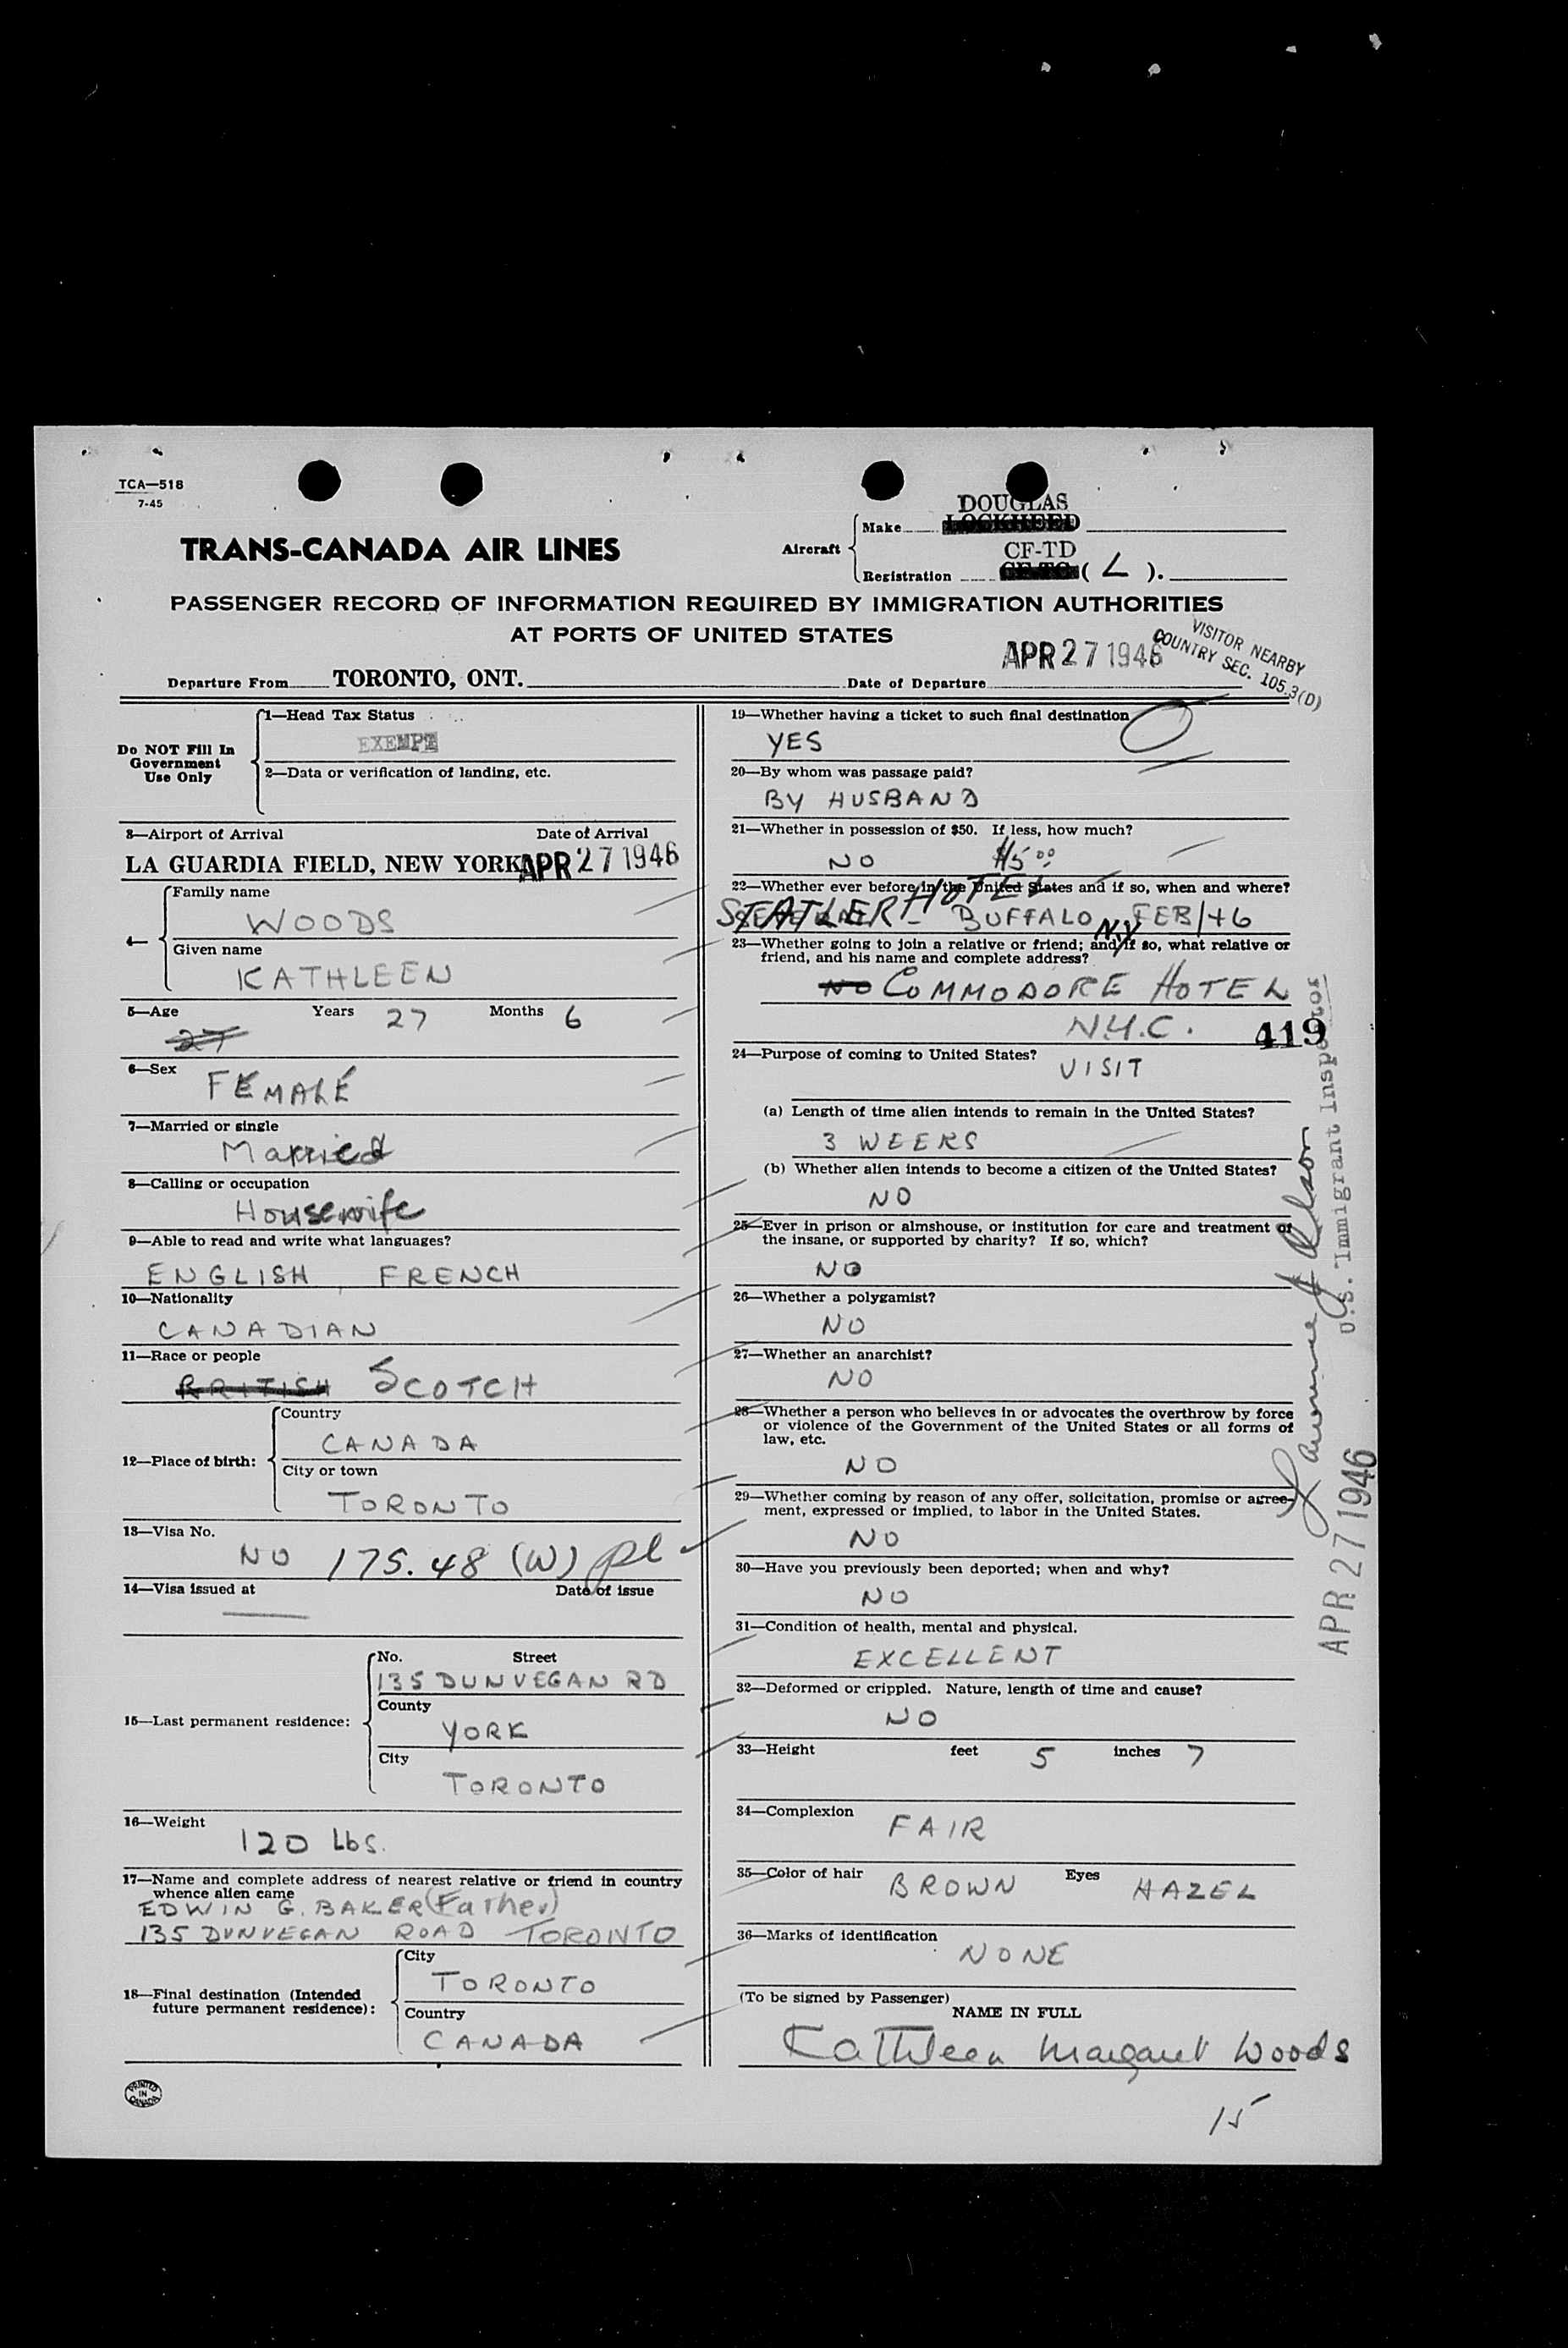 TCA—518
7-45
TRANS-CANADA AIR LINES
Aircraft
Make
DOUGLAS
LOCKHEED
Registration
CF-TD
CF-TC ( L ).
PASSENGER RECORD OF INFORMATION REQUIRED BY IMMIGRATION AUTHORITIES
AT PORTS OF UNITED STATES
VISITOR NEARBY
COUNTRY SEC. 105.3(D)
Departure From TORONTO, ONT. Date of Departure APR 27 1946
Do NOT Fill In
Government
Use Only
1—Head Tax Status
EXEMPT
2—Data or verification of landing, etc.
3—Airport of Arrival Date of Arrival
LA GUARDIA FIELD, NEW YORK APR 27 1946
4—
Family name
WOODS
Given name
KATHLEEN
5—Age Years 27 Months 6
27
6—Sex
FEMALE
7—Married or single
Married
8—Calling or occupation
Housewife
9—Able to read and write what languages?
ENGLISH, FRENCH
10—Nationality
CANADIAN
11—Race or people
BRITISH SCOTCH
12—Place of birth:
Country
CANADA
City or town
TORONTO
13—Visa No.
NO 175.48 (W) pl
14—Visa issued at Date of issue
15—Last permanent residence:
No. Street
135 DUNVEGAN RD
County
YORK
City
TORONTO
16—Weight
120 Lbs.
17—Name and complete address of nearest relative or friend in country
whence alien came
EDWIN G. BAKER (Father)
135 DUNVEGAN ROAD TORONTO
18—Final destination (Intended
future permanent residence):
City
TORONTO
Country
CANADA
PRINTED
IN
CANADA
19—Whether having a ticket to such final destination
YES
20—By whom was passage paid?
BY HUSBAND
21—Whether in possession of $50. If less, how much?
NO $15.00
22—Whether ever before in the United States and if so, when and where?
STATLER HOTEL - BUFFALO N.Y FEB/46
23—Whether going to join a relative or friend; and if so, what relative or
friend, and his name and complete address?
NO COMMODORE HOTEL
N.Y.C. 419
24—Purpose of coming to United States?
VISIT
(a) Length of time alien intends to remain in the United States?
3 WEEKS
(b) Whether alien intends to become a citizen of the United States?
NO
25—Ever in prison or almshouse, or institution for care and treatment of
the insane, or supported by charity? If so, which?
NO
26—Whether a polygamist?
NO
27—Whether an anarchist?
NO
28—Whether a person who believes in or advocates the overthrow by force
or violence of the Government of the United States or all forms of
law, etc.
NO
29—Whether coming by reason of any offer, solicitation, promise or agree-
ment, expressed or implied, to labor in the United States.
NO
30—Have you previously been deported; when and why?
NO
31—Condition of health, mental and physical.
EXCELLENT
32—Deformed or crippled. Nature, length of time and cause?
NO
33—Height feet 5 inches 7
34—Complexion
FAIR
35—Color of hair BROWN Eyes HAZEL
36—Marks of identification
NONE
(To be signed by Passenger)
NAME IN FULL
Kathleen Margaret Woods
15
U.S. Immigrant Inspector
APR 27 1946